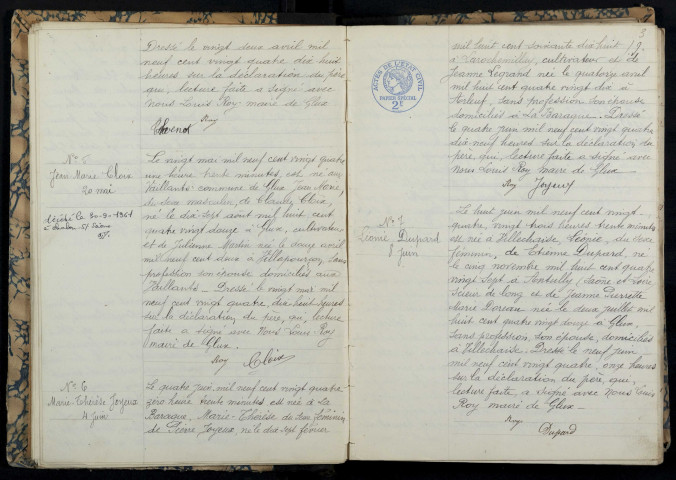 Dressé le vingt deux avril mil
neuf cent vingt quatre dix huit
heures sur la déclaration du père
qui, lecture faite a signé avec
Nous Louis Roy maire de Glux
Roy
Thevenot
N° 5
Jean Marie Cloix
20 mai
décédé le 30-9-1961
à Chalon s/ Saône
Le vingt mai mil neuf cent vingt quatre
une heure trente minutes, est né aux
Vaillants commune de Glux Jean Marie,
du sexe masculin, de Claude Cloix,
né le dix sept août mil huit cent
quatre vingt douze à Glux, cultivateur
et de Julienne Martin née le douze avril
mil neuf cent deux à Villapourçon, sans
profession son épouse domiciliés aux
Vaillants — Dressé le vingt mai mil
neuf cent vingt quatre, dix huit heures
sur la déclaration du père, qui, lecture
faite a signé avec Nous Louis Roy
maire de Glux.
Roy Cloix
N° 6
Marie-Thérèse Joyeux
4 juin
Le quatre juin mil neuf cent vingt quatre
zéro heure trente minutes est née à La
Baraque, Marie-Thérèse du sexe féminin
de Pierre Joyeux, né le dix sept février
3
mil huit cent soixante dix huit
à Larochemillay, cultivateur et de
Jeanne Legrand née le quatorze avril
mil huit cent quatre vingt dix à
Arleuf, sans profession son épouse
domiciliés à La Baraque. Dressé
le quatre juin mil neuf cent vingt quatre
dix-neuf heures sur la déclaration du
père qui, lecture faite a signé avec
Nous Louis Roy maire de Glux —
Roy Joyeux
ACTES DE L'ETAT CIVIL
PAPIER SPECIAL
2F
N° 7
Léonie Dupard
8 juin
Le huit juin mil neuf cent vingt
quatre, vingt trois heures trente minutes
est née à Villechaise, Léonie, du sexe
féminin, de Etienne Dupard, né
le cinq novembre mil huit cent quatre
vingt sept à Antully, Saône et Loire,
scieur de long et de Jeanne Pierrette
Marie Doreau née le deux juillet mil
huit cent quatre vingt douze à Glux,
sans profession, son épouse, domiciliés
à Villechaise. Dressé le neuf juin
mil neuf cent vingt quatre, onze heures
sur la déclaration du père qui,
lecture faite, a signé avec Nous Louis
Roy maire de Glux —
Roy
Dupard